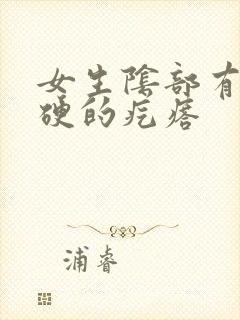 女生陰部有
硬的疙瘩
浦睿